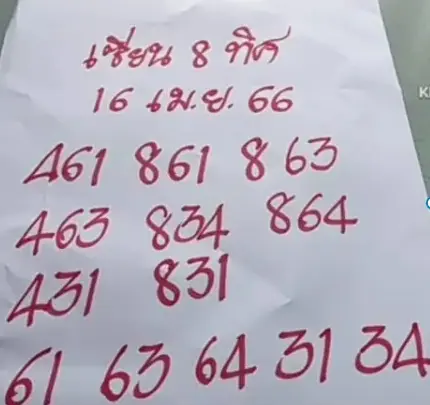 เซียน 8 ทิศ
16 เม.ย. 66
461 861 863
463 834 864
431 831
61 63 64 31 34